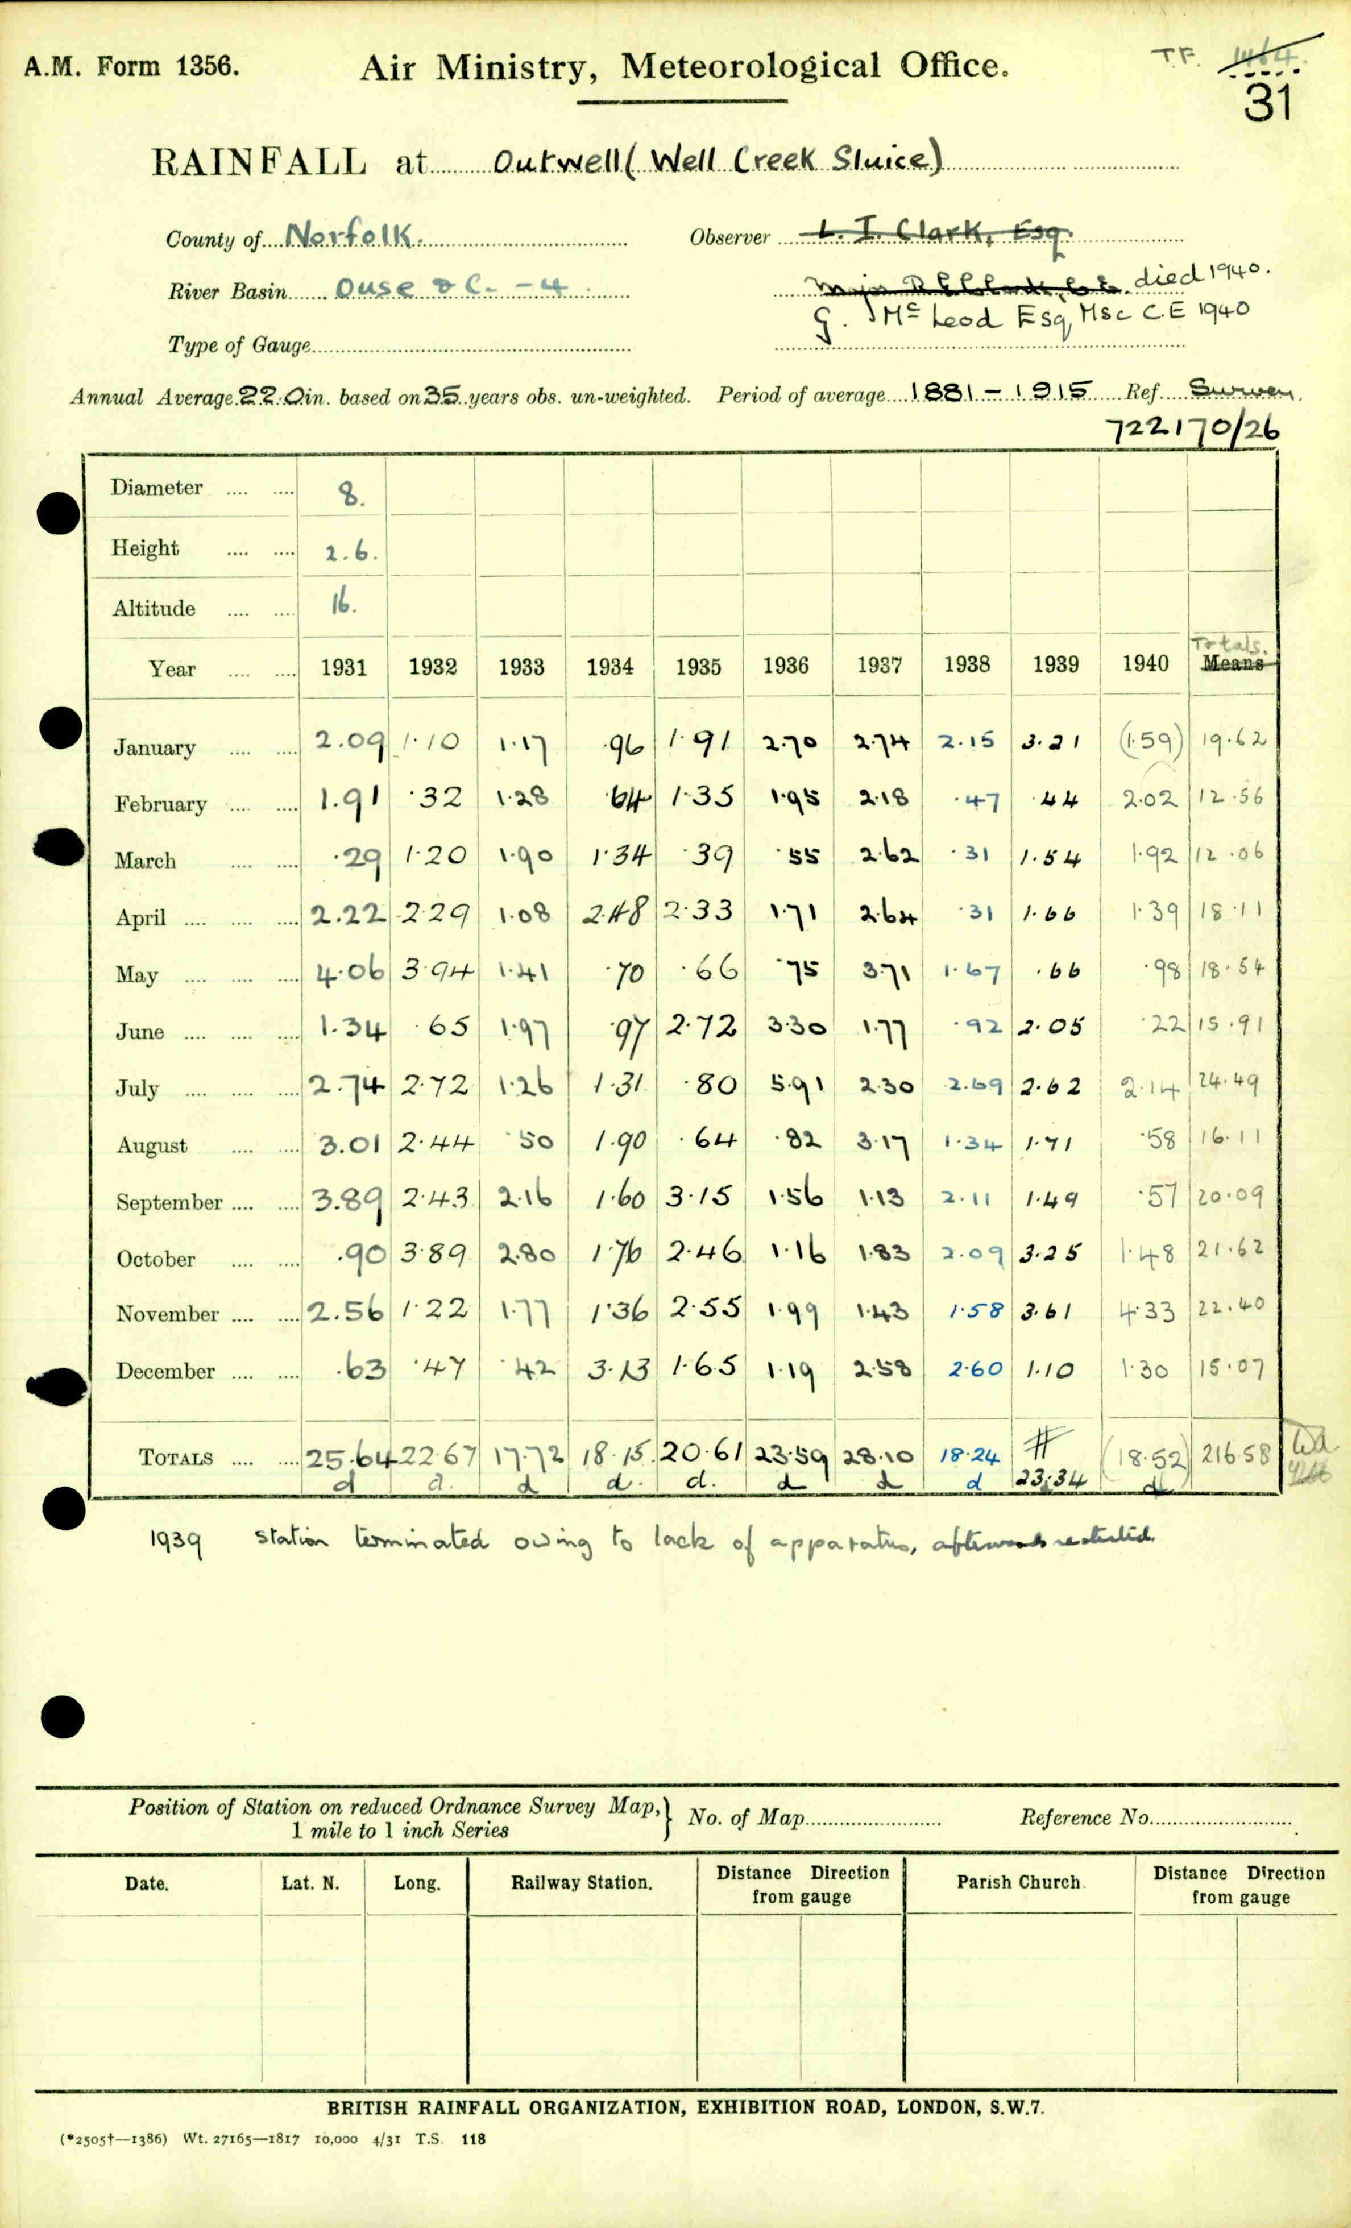 A.M. Form 1356.
Air Ministry, Meteorological Office.
T.F. 1464.
31
RAINFALL at Outwell (Well Creek Sluice)
County of Norfolk. Observer L. I. Clark, Esq.
River Basin Ouse &C. -4 Major died 1940.
G. McLeod Esq, MSc C.E 1940
Type of Gauge
Annual Average 22.0 in. based on 35 years obs. un-weighted. Period of average 1881-1915 Ref. Survey.
722170/26
Diameter .... .... 8.
Height .... .... 2.6.
Altitude .... .... 16.
Totals.
Year .... .... 1931 1932 1933 1934 1935 1936 1937 1938 1939 1940 Means
January .... .... 2.09 1.10 1.17 .96 1.91 2.70 2.74 2.15 3.21 (1.59) 19.62
February .... .... 1.91 .32 1.28 .64 1.35 1.95 2.18 .47 .44 2.02 12.56
March .... .... .29 1.20 1.90 1.34 .39 .55 2.62 .31 1.54 1.92 12.06
April .... .... .... 2.22 2.29 1.08 2.48 2.33 1.71 2.64 .31 1.66 1.39 18.11
May .... .... .... 4.06 3.94 1.41 .70 .66 .75 3.71 1.67 .66 .98 18.54
June .... .... .... 1.34 .65 1.97 .97 2.72 3.30 1.77 .92 2.05 .22 15.91
July .... .... .... 2.74 2.72 1.26 1.31 .80 5.91 2.30 2.69 2.62 2.14 24.49
August .... .... 3.01 2.44 .50 1.90 .64 .82 3.17 1.34 1.71 .58 16.11
September .... .... 3.89 2.43 2.16 1.60 3.15 1.56 1.13 2.11 1.49 .57 20.09
October .... .... .90 3.89 2.80 1.76 2.46 1.16 1.83 2.09 3.25 1.48 21.62
November .... .... 2.56 1.22 1.77 1.36 2.55 1.99 1.43 1.58 3.61 4.33 22.40
December .... .... .63 .47 .42 3.13 1.65 1.19 2.58 2.60 1.10 1.30 15.07
TOTALS .... .... 25.64 22.67 17.72 18.15 20.61 23.59 28.10 18.24 # 23.34 (18.52) 216.58
d d. d d. d. d d d d
1939 Station terminated owing to lack of apparatus, afterwards
Position of Station on reduced Ordnance Survey Map, } No. of Map Reference No.
1 mile to 1 inch Series
Date. Lat. N. Long. Railway Station. Distance Direction from gauge Parish Church. Distance Direction from gauge
BRITISH RAINFALL ORGANIZATION, EXHIBITION ROAD, LONDON, S.W.7.
(*2505†—1386) Wt. 27165—1817 10,000 4/31 T.S. 118